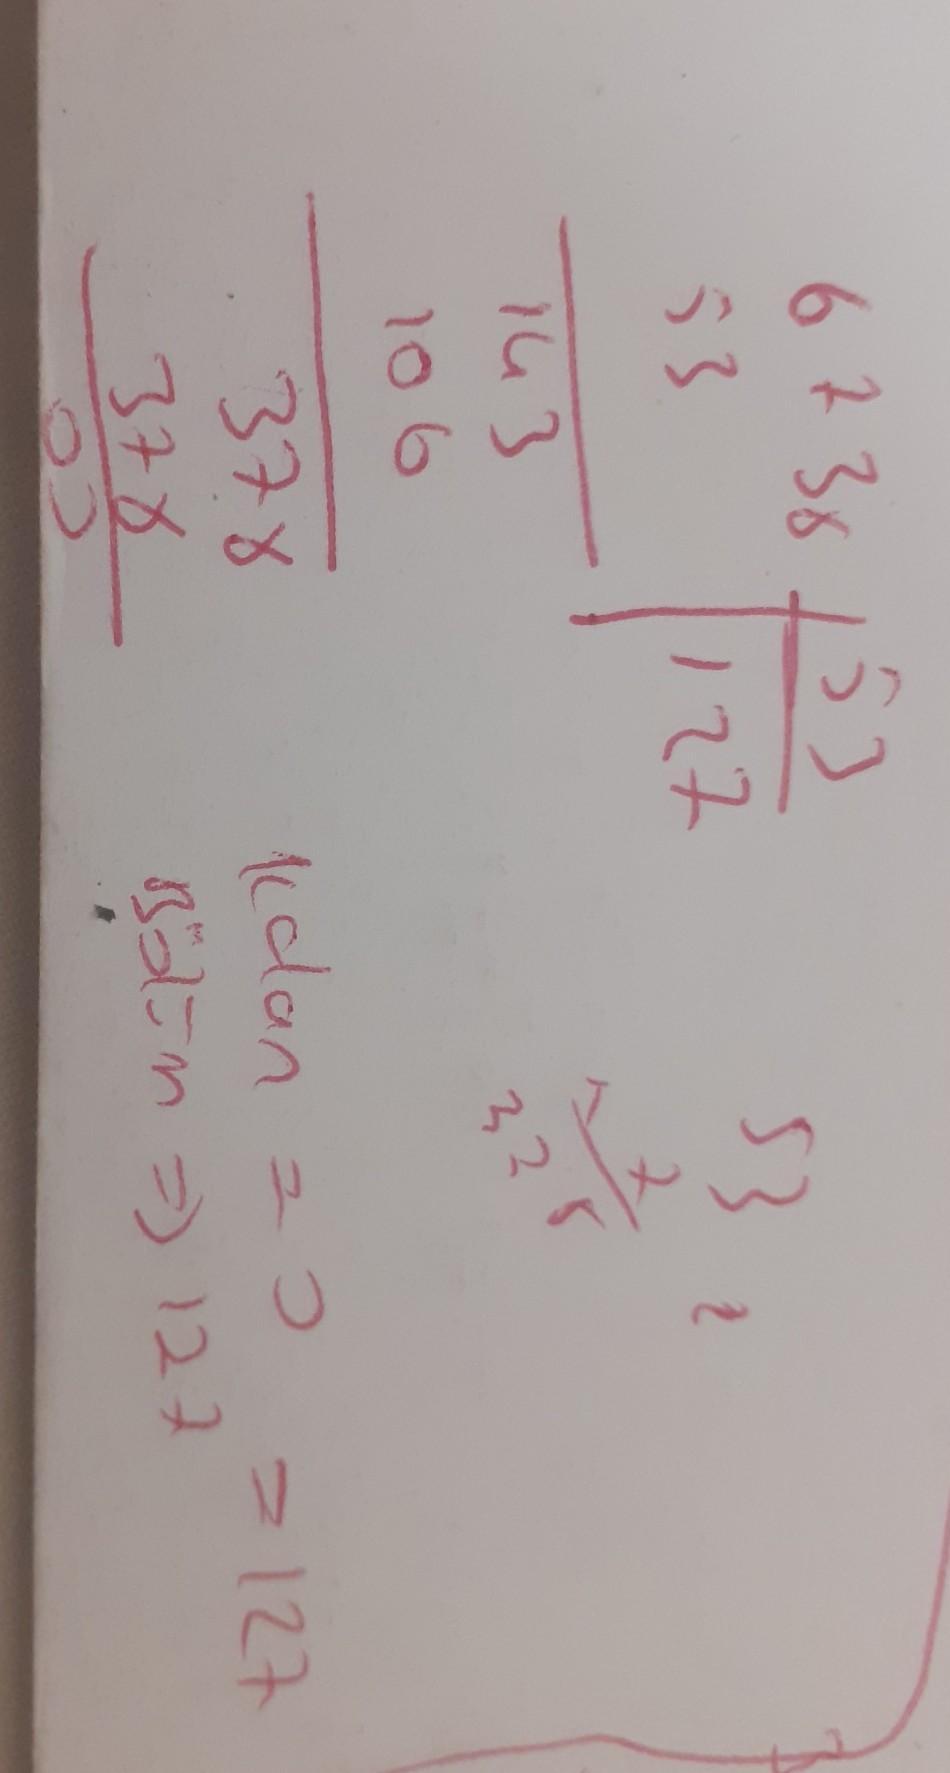 6738 53
53 127
143
106
378
378
00
53 2
7
Kalan = 0 = 127
Bölüm => 127